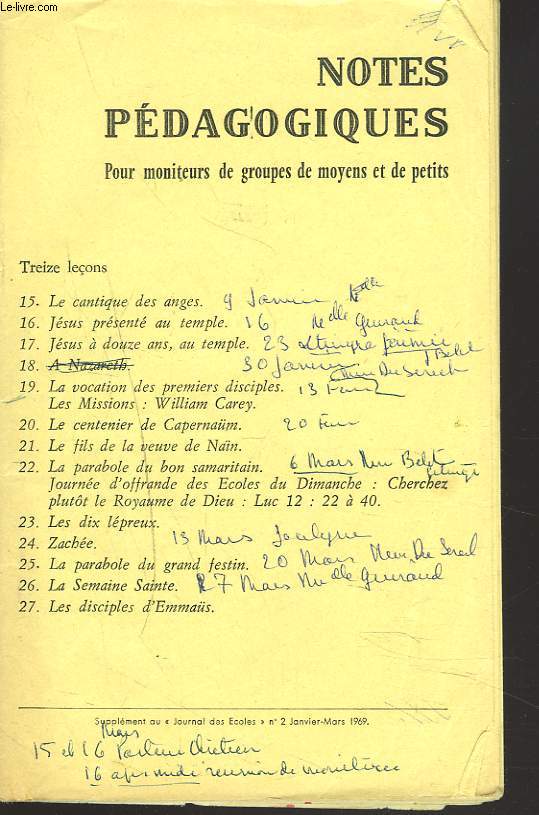 Le-livre.com
NOTES
PÉDAGOGIQUES
Pour moniteurs de groupes de moyens et de petits
Treize leçons
15. Le cantique des anges. 9 Janvier Melle
16. Jésus présenté au temple. 16 Melle Guiraud
17. Jésus à douze ans, au temple. 23
18. A Nazareth. 30 Janvier
19. La vocation des premiers disciples. 13 Fev
Les Missions : William Carey.
20. Le centenier de Capernaüm. 20 Fev
21. Le fils de la veuve de Naïn.
22. La parabole du bon samaritain. 6 Mars Mme
Journée d'offrande des Ecoles du Dimanche : Cherchez
plutôt le Royaume de Dieu : Luc 12 : 22 à 40.
23. Les dix lépreux.
24. Zachée. 13 Mars Jocelyne
25. La parabole du grand festin. 20 Mars Mme
26. La Semaine Sainte. 27 Mars Melle Guiraud
27. Les disciples d'Emmaüs.
Supplément au « Journal des Ecoles » n° 2 Janvier-Mars 1969.
Mars
15 et 16
16 après midi réunion de